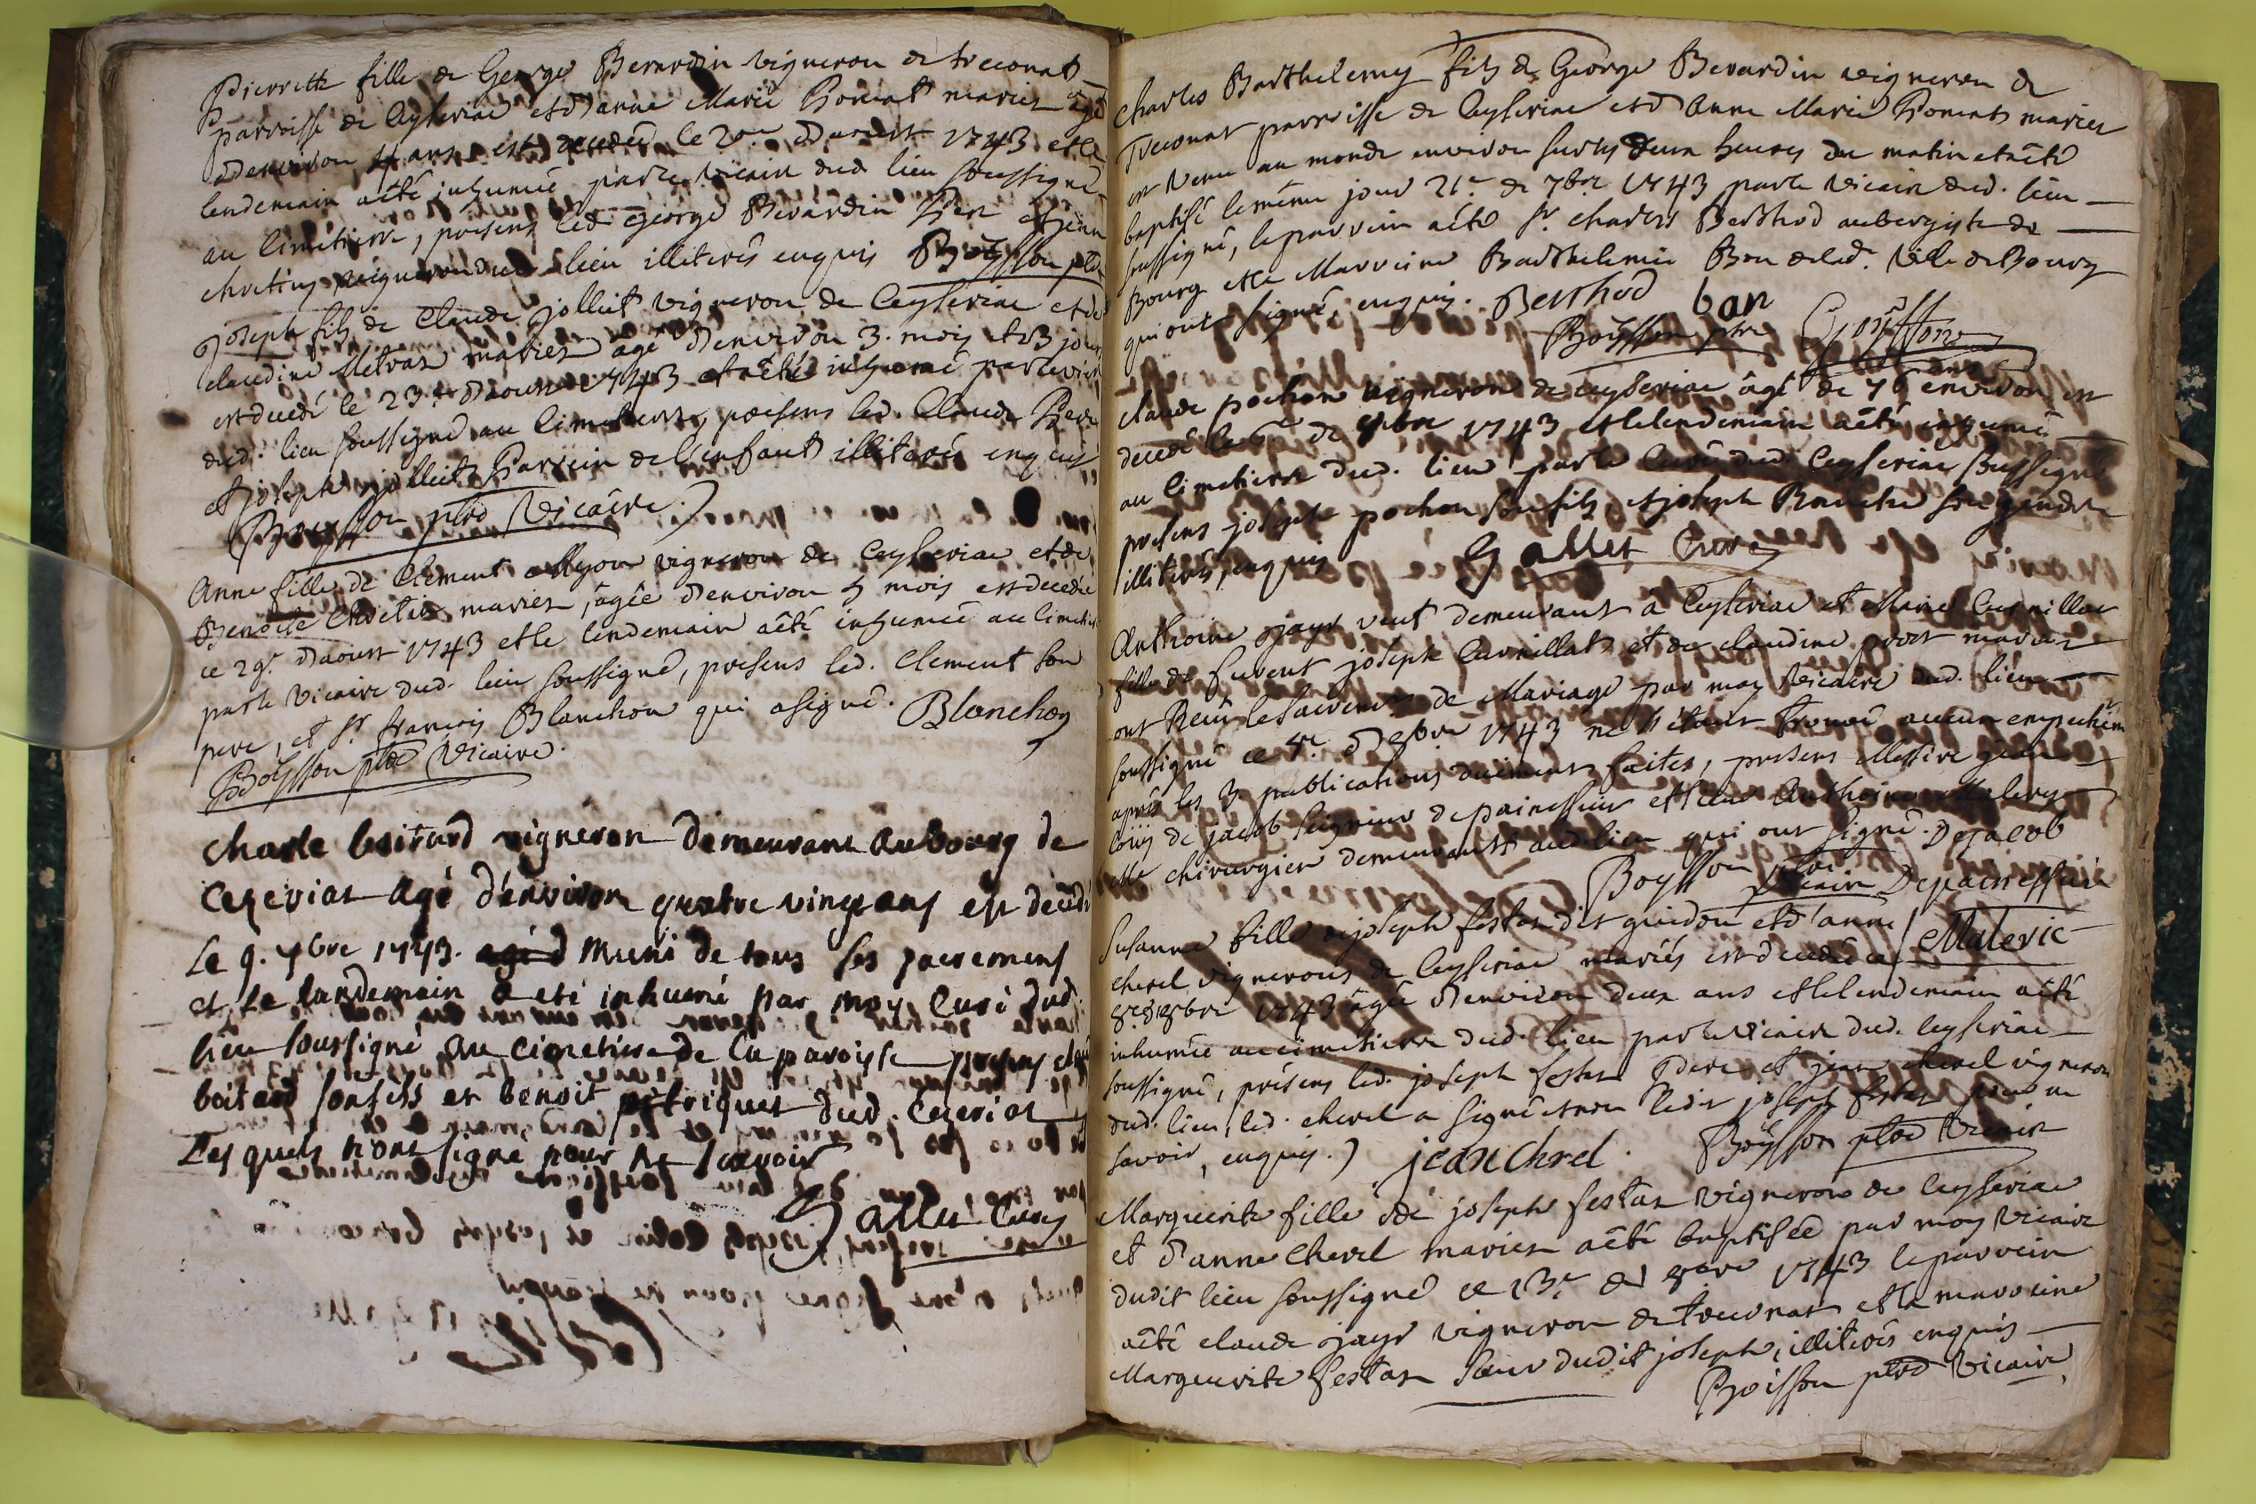 Pierrette fille de George Berardin vigneron de treconat
parroisse de Ceyseriat et d'anne Marie Poncat mariez agé
d'environ 4 ans est decedée le 20e d'aoust 1743 et le
lendemain a été inhumée par le vicaire dud. lieu soussigné
au cimetierre, présens led George Berardin Pere et jean
chretin vigneron dud lieu illiterés enquis Boysson ptre
joseph fils de Claude jollict vigneron de Ceyseriat et de
claudine Metras mariez âgé d'environ 3. mois et 3 jours
est decedé le 23e d'aoust 1743 et a été inhumé par le vicaire
dud. lieu soussigné au cimetierre, présens led. Claude Pere
et joseph jollict Parrein de l'enfant illiterés enquis
Boysson ptre Vicaire.
Anne fille de Clement Myon vigneron de Ceyseriat et de
Benoite Chretin mariez, âgée d'environ 5 mois est decedée
ce 29e. d'aoust 1743 et le lendemain a été inhumée au cimetierre
par le Vicaire dud. lieu soussigné, présens led. Clement son
pere, et Sr. françois Blanchon qui a signé. Blanchon
Boysson ptre Vicaire.
charle boitard vigneron demeurant au bourg de
Cezeriat agé d'environ quatre vingt ans est décédé
Le 9. 7bre 1743. agé d muni de tous ses sacremens
et le landemain a eté inhumé par moy Curé dud.
lieu soussigné au cimetiere de la paroisse presens
boitard son fils et benoit petriquet dud. Cezeriat
Lesquels n'ont signé pour ne scavoir
Gallet Curé
Charles Barthelemy fils de George Berardin vigneron de
Treconat parroisse de Ceyseriat et d'Anne Marie Poncat mariez
est venu au monde environ sur les deux heures du matin et a été
baptisé le même jour 21e. de 7bre 1743 par le vicaire dud. lieu
soussigné, le parrein a été Sr. charles Berthod aubergiste de
Bourg et la Marreine Barthelemie Bon de lad. Ville de Bourg
qui ont signé, enquis. Berthod bon
Boysson ptre
Claude pochon vigneron de Ceyseriat âgé de 76 ans environ est
decedé le de 8bre 1743 et le lendemain a été inhumé
au cimetierre dud. lieu par le Curé dud. Ceyseriat soussigné
présens joseph pochon son fils, et joseph son gendre
illiterés, enquis Gallet Curé
Anthoine jayr veuf demeurant à Ceyseriat et Marie Curnillat
fille de furent joseph Curnillat et de claudine prost mariez
ont Receu le Sacrement de Mariage par moy Vicaire dud. lieu
soussigné ce 8bre 1743 ne s'étant trouvé aucun empechem
après les 3 publications duëment faites, présens Messire jean
Louis de jacob Seigneur de painessuit et Sieur Anthoine Malery
Me chirurgien demeurants aud lieu qui ont signé. Dejacob
Boysson ptre Vicaire Depainessuit
Susanne fille de joseph festas dit guidon et d'anne Maleric
cherel vignerons de Ceyseriat mariés est decedée ce
8e. d'8bre 1743 âgée d'environ deux ans et le lendemain a été
inhumée au cimetiere dud. lieu par le Vicaire dud. Ceyseriat
soussigné, présens led. joseph festas Pere et jean cherel vigneron
dud. lieu, led. cherel a signé et non ledit joseph festas pour ne
savoir, enquis.) jean chrel. Boysson ptre Vicaire
Marguerite fille de joseph festas vigneron de Ceyseriat
et d'anne Cherel mariez a été baptisée par moy Vicaire
dudit lieu soussigné ce 13e de 8bre 1743 le parrein
a été claude jayr vigneron de treconat et la marreine
Marguerite festas Sœur dudit joseph, illiterés enquis
Boisson ptre Vicaire,